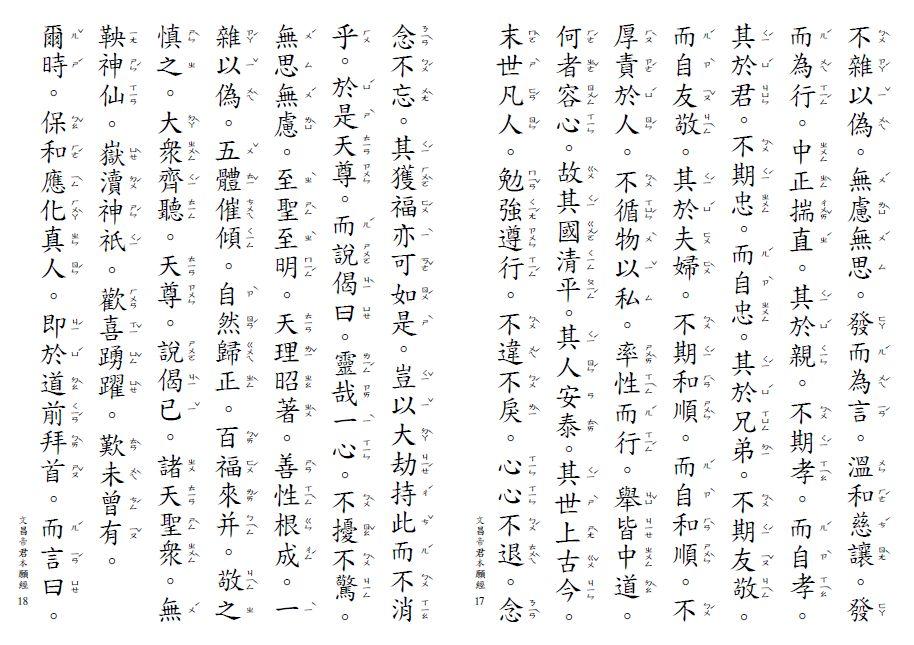 不雜以偽。無慮無思。發而為言。溫和慈讓。發
而為行。中正揣直。其於親。不期孝。而自孝。
其於君。不期忠。而自忠。其於兄弟。不期友敬。
而自友敬。其於夫婦。不期和順。而自和順。不
厚責於人。不循物以私。率性而行。舉皆中道。
何者容心。故其國清平。其人安泰。其世上古今
末世凡人。勉強遵行。不違不戾。心心不退。念
文昌帝君本願經 17
念不忘。其獲福亦可如是。豈以大劫持此而不消
乎。於是天尊。而說偈曰。靈哉一心。不擾不驚。
無思無慮。至聖至明。天理昭著。善性根成。一
雜以偽。五體催傾。自然歸正。百福來并。敬之
慎之。大眾齊聽。天尊。說偈已。諸天聖眾。無
鞅神仙。嶽瀆神祇。歡喜踴躍。歎未曾有。
爾時。保和應化真人。即於道前拜首。而言曰。
文昌帝君本願經 18